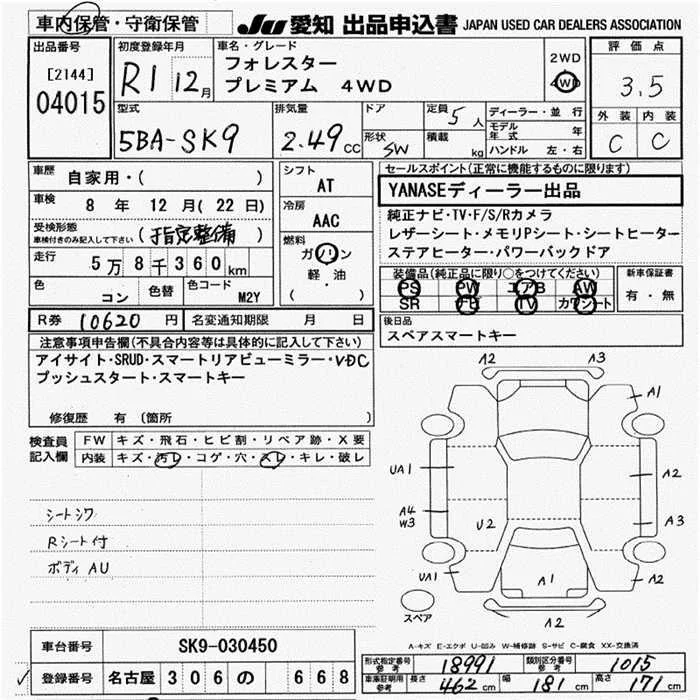 車内保管・守衛保管
JU 愛知 出品申込書 JAPAN USED CAR DEALERS ASSOCIATION
出品番号
[2144]
04015
初度登録年月
R1 12月
車名・グレード
フォレスター
プレミアム 4WD
2WD
4WD
評価点
3.5
外装 内装
C C
型式
5BA-SK9
排気量
2.49CC
ドア
形状 SW
定員 5人
積載 kg
ディーラー・並行
モデル年式 年
ハンドル 左・右
車歴 自家用・( )
車検 8年 12月(22日)
受検形態
車検付きのみ記入して下さい (指定整備)
走行 5万8千360km
色 コン 色替 色コード M2Y
シフト
AT
冷房
AAC
燃料
ガソリン
軽・油
( )
セールスポイント(正常に機能するものに限ります)
YANASEディーラー出品
純正ナビ・TV・F/S/Rカメラ
レザーシート・メモリPシート・シートヒーター
ステアヒーター・パワーバックドア
装備品(純正品に限り○をつけてください)
PS PW エアB AW
SR ナビ TV カワシート
新車保証書
有・無
R券 10620円 名変通知期限 月 日
後日品
スペアスマートキー
注意事項申告欄(不具合内容等は具体的に記入して下さい)
アイサイト・SRUD・スマートリアビューミラー・VDC
プッシュスタート・スマートキー
修復歴 有(箇所 )
検査員記入欄
FW キズ・飛石・ヒビ割・リペア跡・X要
内装 キズ・汚レ・コゲ・穴・スレ・キレ・破レ
シートシワ
Rシート付
ボディAU
A2 A3
A1
UA1
A2
A4
W3
U2
A3
UA1
A1
A2
スペア
A2
A-キズ E-エクボ U-凹み W-補修跡 S-サビ C-腐食 XX-交換済
車台番号 SK9-030450
登録番号 名古屋 306 の 668
形式指定番号 参考 18991 類別区分番号 参考 1015
車庫証明用 参考 長さ 462cm 幅 181cm 高さ 171cm